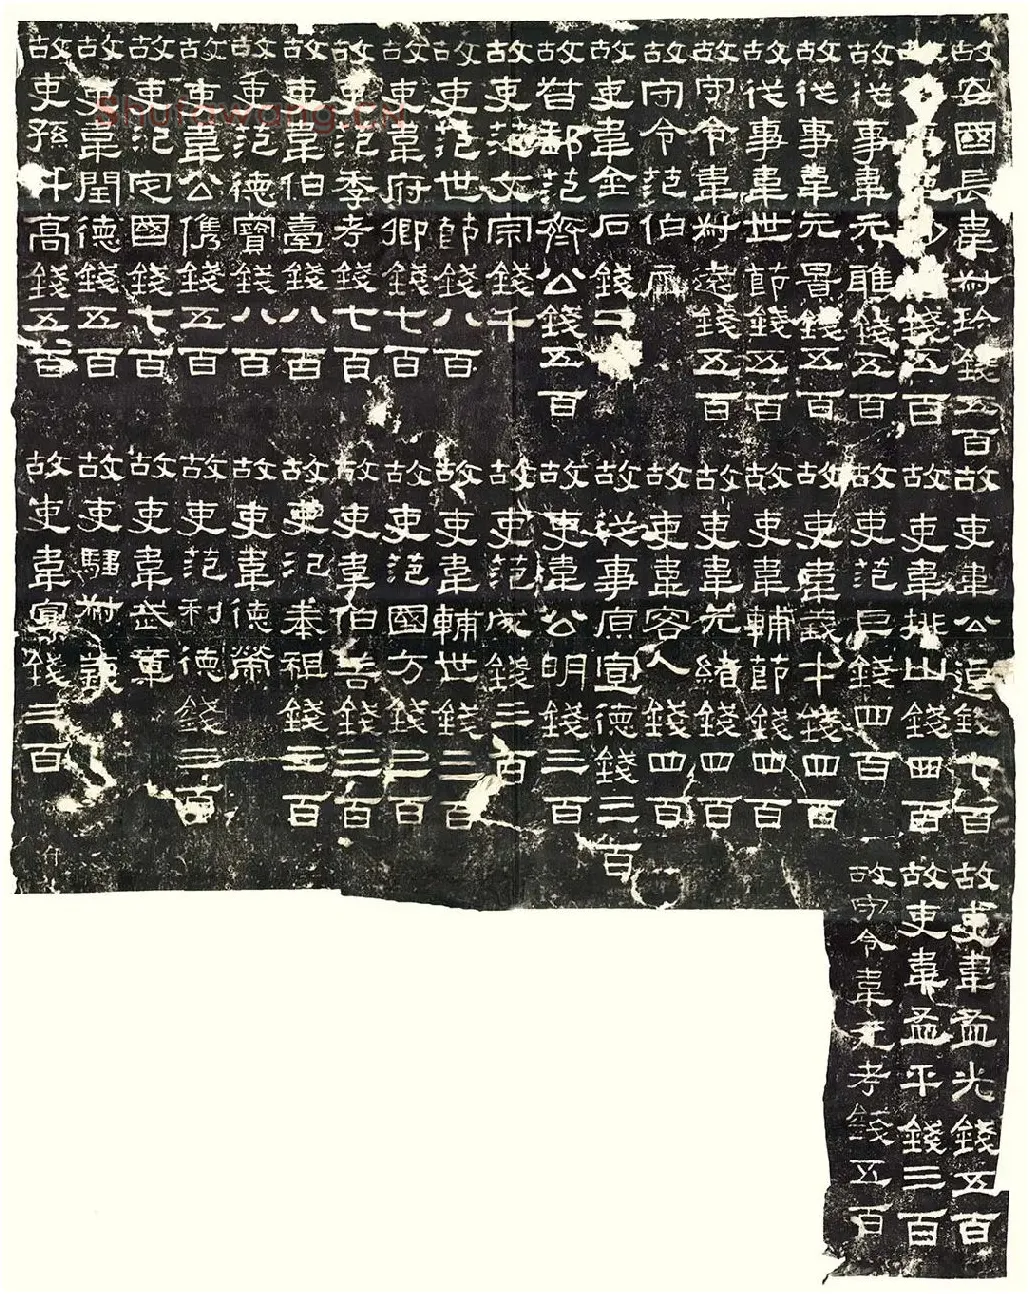 故安國長韋叔珍錢五百
故從事韋錢五百
故從事韋元雁錢五百
故從事韋元景錢五百
故從事韋世節錢五百
故守令韋叔遠錢五百
故守令范伯犀
故吏韋金石錢二
故督郵范齊公錢五百
故吏范文宗錢千
故吏范世節錢八百
故吏韋府卿錢七百
故吏范季考錢七百
故吏韋伯臺錢八百
故吏范德寶錢八百
故吏韋公儁錢五百
故吏氾定國錢七百
故吏韋閏德錢五百
故吏孫升高錢五百
故吏韋公逴錢七百
故吏韋排山錢四百
故吏范巨錢四百
故吏韋義才錢四百
故吏韋輔節錢四百
故吏韋元緒錢四百
故吏韋容人錢四百
故從事原宣德錢三百
故吏韋公明錢三百
故吏范成錢三百
故吏韋輔世錢三百
故吏范國方錢三百
故吏韋伯善錢三百
故吏氾奉祖錢三百
故吏韋德榮
故吏范利德錢三百
故吏韋武章
故吏騶叔義
故吏韋宣錢三百
故吏韋孟光錢五百
故吏韋孟平錢三百
故守令韋元考錢五百
Shufawang.cn